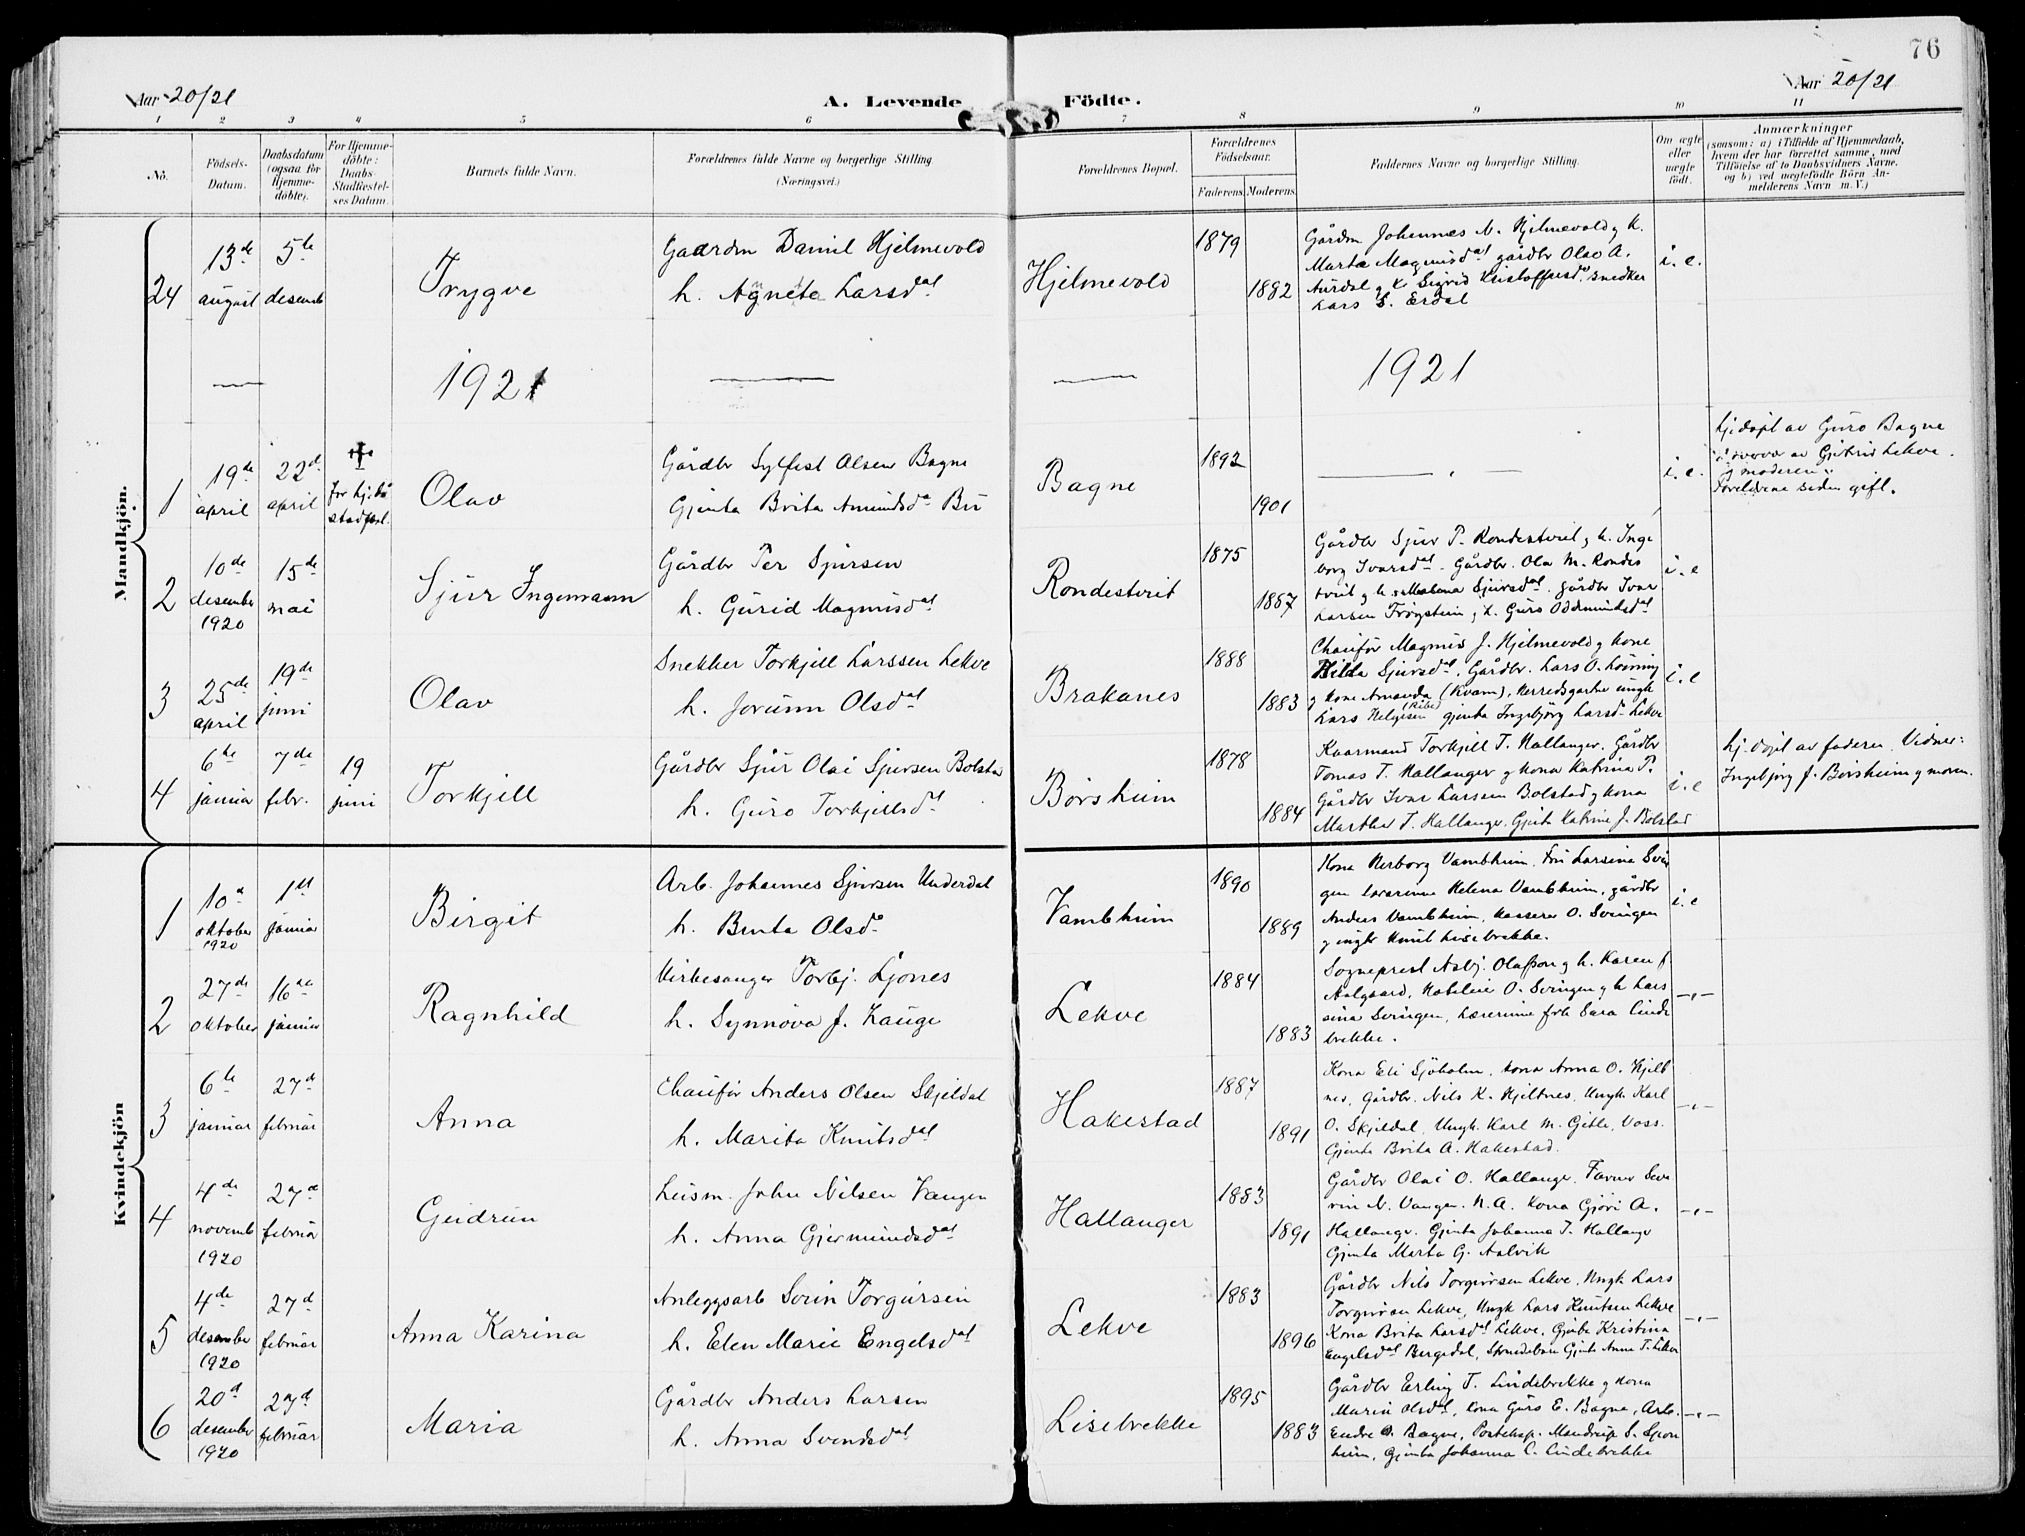 76
Aar 20/21
A. Levende Födte.
Aar 20/21
1 2 3 4 5 6 7 8 9 10 11
No.
Födsels-Datum.
Daabsdatum (ogsaa for Hjemme-döbte).
For Hjemme-döbte: Daabs-Stadfæstel-ses Datum.
Barnets fulde Navn.
Forældrenes fulde Navne og borgerlige Stilling (Næringsvei.)
Forældrenes Bopæl.
Forældrenes Födselsaar.
Faderens. Moderens.
Faddernes Navne og borgerlige Stilling.
Om ægte eller uægte födt.
Anmærkninger
(saasom: a) i Tilfælde af Hjemmedaab,
hvem der har forrettet samme, med
Tilföielse af to Daabsvidners Navne.
og b) ved uægtefödte Börn An-
melderens Navn m. V.)
Mandkjön.
24
13de august
5te desemb
Trygve
Gaardm Daniel Hjelmevold
h. Agneta Larsdat
Hjelmevold
1879
1882
Gårdm Johannes N. Hjelmevold g h.
Marta Magnusdat gårdbr Olav A.
Aurdal g k Sigrid Kristoffersd. snedker
Lars E. Erdal
i. e.
1921
1921
1
19de april
22d april
for hj.då stadfæst.
Olav
Gårdbr Sylfest Olsen Bagne
Gjenta Brita Amundsda Bu
Bagne
1892
1901
i. e.
hj.døpt av Guro Bagne
i nærvær av Gjertrud Lekve
og moderen.
Foreldrene siden gift.
2
10de desember 1920
15de mai
Sjur Ingemann
Gårdbr Per Sjursen
h. Gurid Magnusdat
Rondestveit
1875
1887
Gårdbr Sjur P. Rondestveit g h. Inge
borg Ivarsdat. Gårdbr. Olav M. Rondes
tveit g h. Sjursdat. gårdbr Ivar
Larsen Trøystein g h. Guro Oddmundsdat
i. e
3
25de april
19de juni
Olav
Snekker Torkjell Larssen Lekve
h. Jorunn Olsdat
Brakanes
1888
1883
Chaufør Magnus J. Hjelmevold g kone
Hilda Sjursdat. Gårdbr. Lars O. Lönning
g kone Amanda (Kvam), Herredsgartner ungk
Lars Helgesen (Ribe) gjenta Ingebjörg Larsd Lekve
i. e
4
6te januar
7de febr.
19 juni
Torkjell
Gårdbr Sjur Olai Sjursen Bolsta
h. Guro Torkjellsdt
Börsheim
1878
1884
Kaarmand Torkjell T. Hallanger. Gårdbr
Tomas T. Hallanger g kona Katrina P.
Gårdbr Ivar Larsen Bolstad g kona
Martha T. Hallanger. Gjenta Katrine J. Bolstad
i. e
hj.døpt av faderen. Vidner:
Ingebjörg J. Børsheim g moren.
Kvindekjön
1
10d oktober 1920
1ste januar
Birgit
Arb. Johannes Sjursen Underdal
h. Brita Olsda
Vambheim
1890
1889
Kona Herborg Vambheim, Fru Larsina Svin
gen lærarinne Helena Vambheim, gårdbr
Anders Vambheim, kasserer O. Svingen
g ungkr Knut Lisebrekke.
i. e
2
27de oktober
16de januar
Ragnhild
Virkesanger Torbj. Ljones
h. Synnøva J. Hauge
Lekve
1884
1883
Sogneprest Asbj. Olafson g h. Karen f.
Aalgaard, O. Svingen g h Lars
sina Svingen, Lærerinne frk Sara Linde
brekke.
— „ —
3
6te januar
27d februar
Anna
Chaufør Anders Olsen Skjeldal
h. Marita Knutsdat
Hakestad
1887
1891
Kona Eli Sjöholm, kona Anna O. Hjelt
nes, Gårdbr. Nils K. Hjeltnes, Ungk. Karl
O. Skjeldal, Ungk. Karl M. Gjelle, Voss.
Gjenta Brita A. Hakestad.
— „ —
4
4de novemb 1920
27d februa
Gudrun
Leism. John Nilsen Vangen
h. Anna Gjermundsdat
Hallanger
1883
1891
Gårdbr Olai O. Hallange. Farmer Seve
rin N. Vangen. N. A. Kona Gjöri A.
Hallange. Gjenta Johanna T. Hallange
Gjenta Marta G. Aalvik
— „ —
5
4de desember 1920
27d februar
Anna Karina
Anleggsarb Sörin Torgeirsen
h. Elen Marie Engelsdat
Lekve
1883
1896
Gårdbr Nils Torgeirsen Lekve. Ungk Lars
Torgeirsen Lekve, Ungk Lars Knutsen Lekve
Kona Brita Larsdat Lekve. Gjenta Kristina
Engelsdat Bergedal, Gjenta Anna T. Lekve
— „ —
6
20d desember 1920
27d februar
Maria
Gårdbr Anders Larsen
h. Anna Svendsdat
Lisebrekke
1895
1883
Gårdbr Erling T. Lindebrekke g kona
Marie Olsdat, kona Guro E. Bagne, Arb.
Endre O. Bagne, Posteksp. Mandrup S. Spon
heim, Gjenta Johanna L. Lindebrekke
— „ —